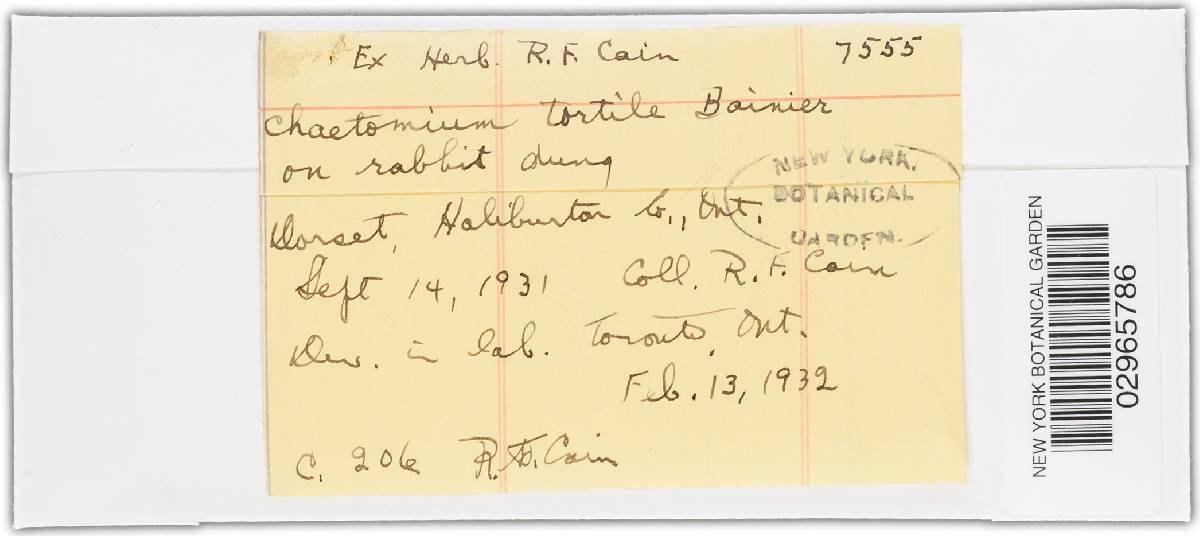 Ex Herb. R. F. Cain 7555
Chaetomium tortile Bainier
on rabbit dung
NEW YORK.
BOTANICAL
GARDEN.
Dorset, Haliburton Co., Ont.
Sept 14, 1931 Coll. R. F. Cain
Dev. in lab. Toronto, Ont.
Feb. 13, 1932
C. 206 R. F. Cain
NEW YORK BOTANICAL GARDEN
02965786